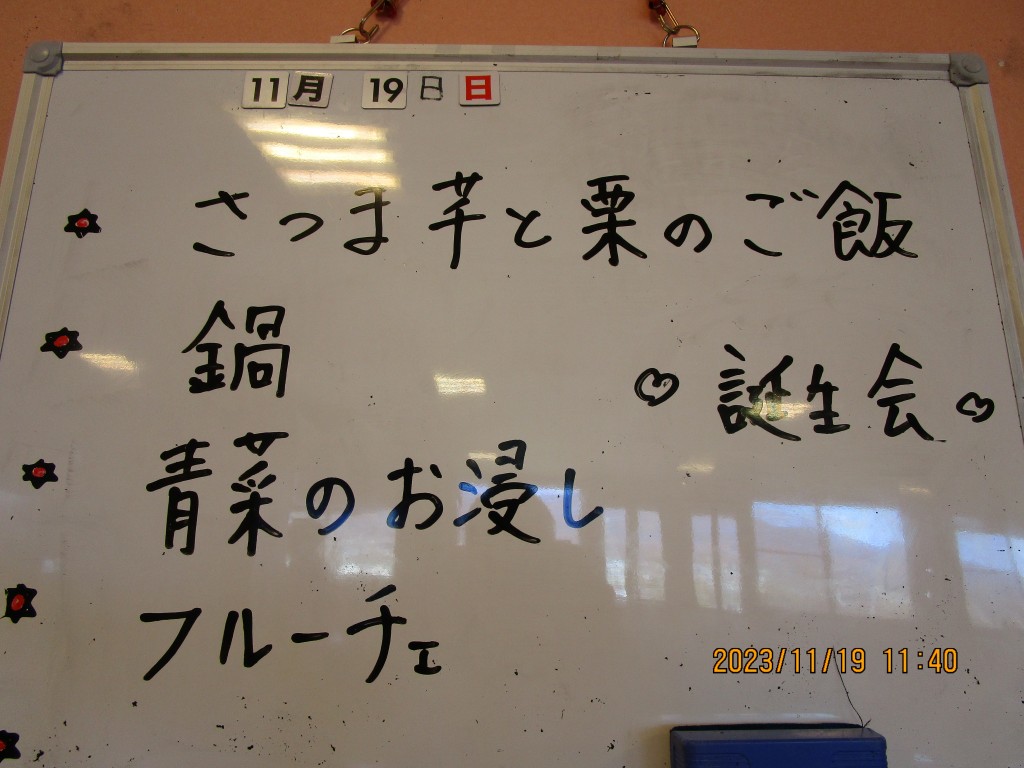 11月 19日 日
さつま芋と栗のご飯
鍋
♡ 誕生会 ♡
青菜のお浸し
フルーチェ
2023/11/19 11:40